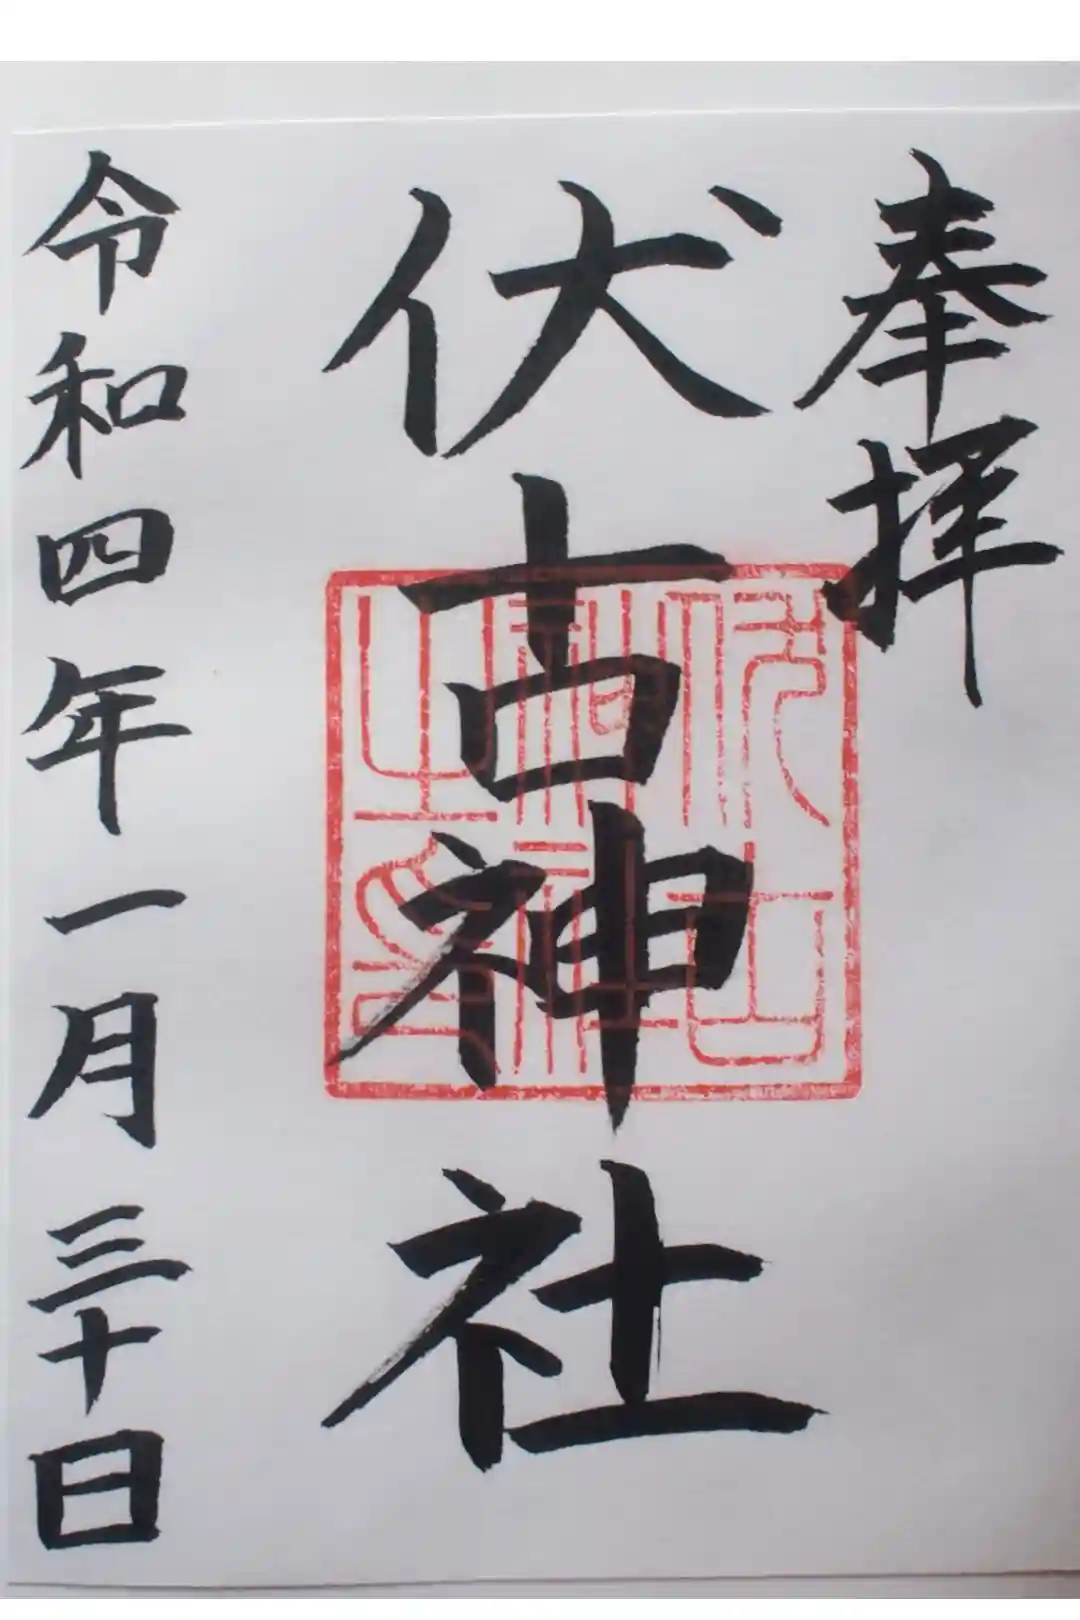 奉拝
伏古神社
令和四年一月三十日